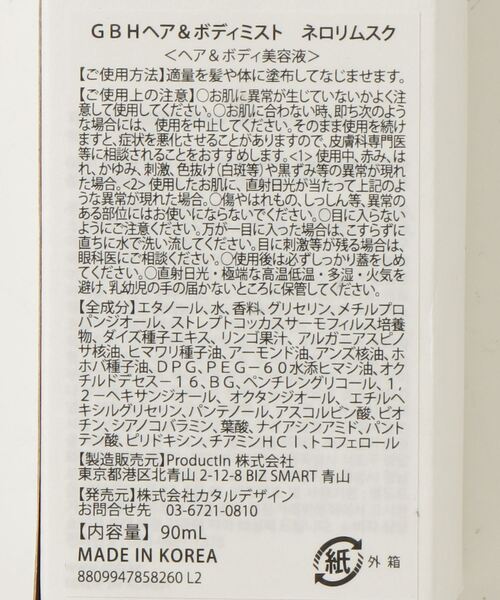 GBHヘア&ボディミスト　ネロリムスク
<ヘア&ボディ美容液>
【ご使用方法】適量を髪や体に塗布してなじませます。
【ご使用上の注意】○お肌に異常が生じていないかよく注
意して使用してください。○お肌に合わない時、即ち次のよう
な場合には、使用を中止してください。そのまま使用を続け
ますと、症状を悪化させることがありますので、皮膚科専門医
等に相談されることをおすすめします。<1> 使用中、赤み、は
れ、かゆみ、刺激、色抜け(白斑等)や黒ずみ等の異常が現れ
た場合。<2> 使用したお肌に、直射日光が当たって上記のよ
うな異常が現れた場合。○傷やはれもの、しっしん等、異常の
ある部位にはお使いにならないでください。○目に入らない
ようにご注意ください。万が一目に入った場合は、こすらずに
直ちに水で洗い流してください。目に刺激等が残る場合は、
眼科医にご相談ください。○使用後は必ずしっかり蓋をしめ
てください。○直射日光・極端な高温低温・多湿・火気を
避け、乳幼児の手の届かないところに保管してください。
【全成分】エタノール、水、香料、グリセリン、メチルプロ
パンジオール、ストレプトコッカスサーモフィルス培養
物、ダイズ種子エキス、リンゴ果汁、アルガニアスピノ
サ核油、ヒマワリ種子油、アーモンド油、アンズ核油、ホ
ホバ種子油、DPG、PEG-60水添ヒマシ油、オク
チルドデセス-16、BG、ペンチレングリコール、1,
2-ヘキサンジオール、オクタンジオール、エチルヘ
キシルグリセリン、パンテノール、アスコルビン酸、ビオ
チン、シアノコバラミン、葉酸、ナイアシンアミド、パント
テン酸、ピリドキシン、チアミンHCI、トコフェロール
【製造販売元】ProductIn 株式会社
東京都港区北青山 2-12-8 BIZ SMART 青山
【発売元】株式会社カタルデザイン
お問合せ先　03-6721-0810
【内容量】90mL
MADE IN KOREA
8809947858260 L2
紙 外箱